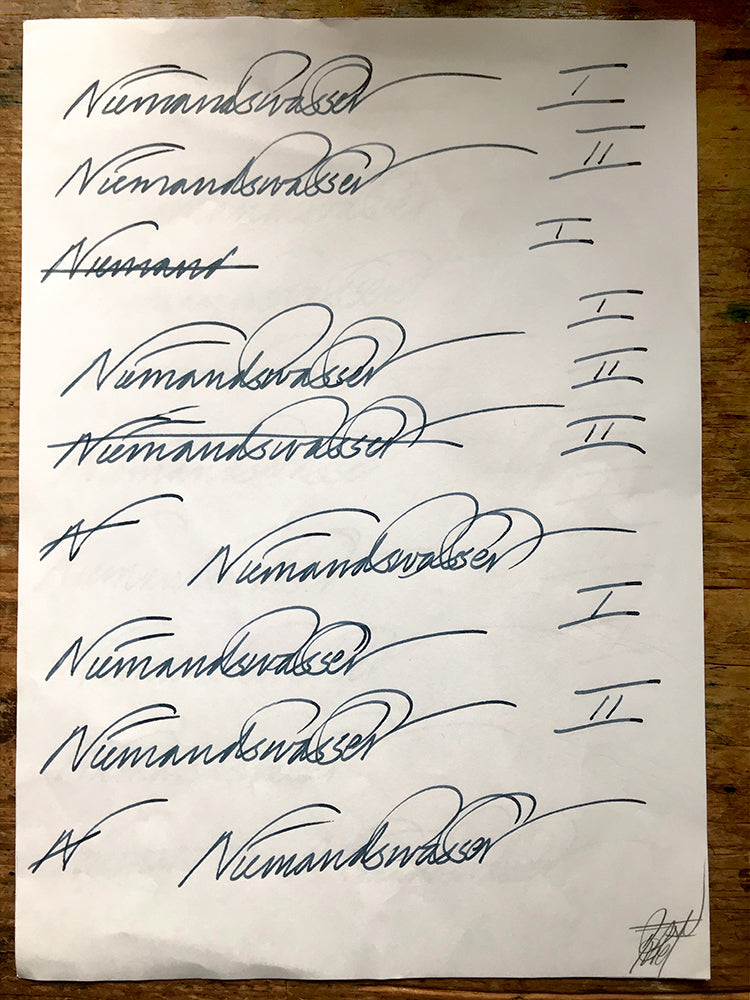 Niemandswasser I
Niemandswasser II
Niemand I
I
Niemandswasser II
Niemandswasser II
N Niemandswasser
I
Niemandswasser
Niemandswasser II
N Niemandswasser